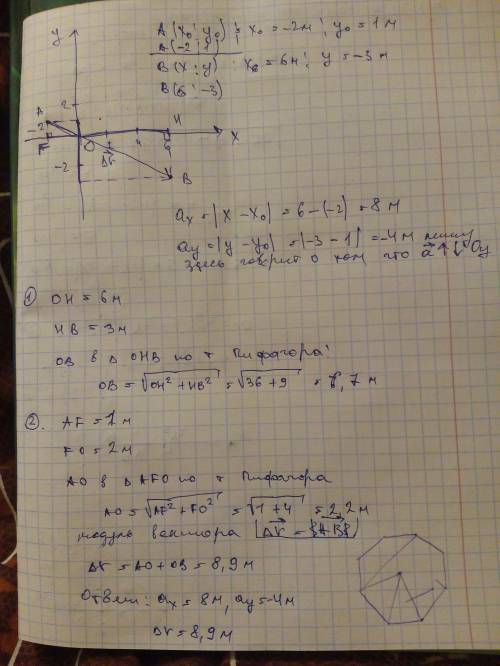 y
A (x₀; y₀) ; x₀ = -2м; y₀ = 1 м
A (-2; 1)
B (x; y) ; x₆ = 6м; y = -3 м
B (6; -3)
2
A
-2
F
O
4
6
H
X
Δr
-2
B
aₓ = |x - x₀| = 6 - (-2) = 8 м
ay = |y - y₀| = |-3 - 1| = -4 м минус
здесь говорит о том что a↑↓Oy
① OH = 6м
HB = 3м
OB в Δ OHB по т Пифагора:
OB = √OH² + HB² = √36 + 9 = 6,7 м
②. AF = 1м
FO = 2м
AO в Δ AFO по т Пифагора
AO = √AF² + FO² = √1 + 4 = 2,2м
модуль вектора |Δr = {AB}|
Δr = AO + OB = 8,9 м
Ответ: aₓ = 8м, ay = -4м
Δr = 8,9 м